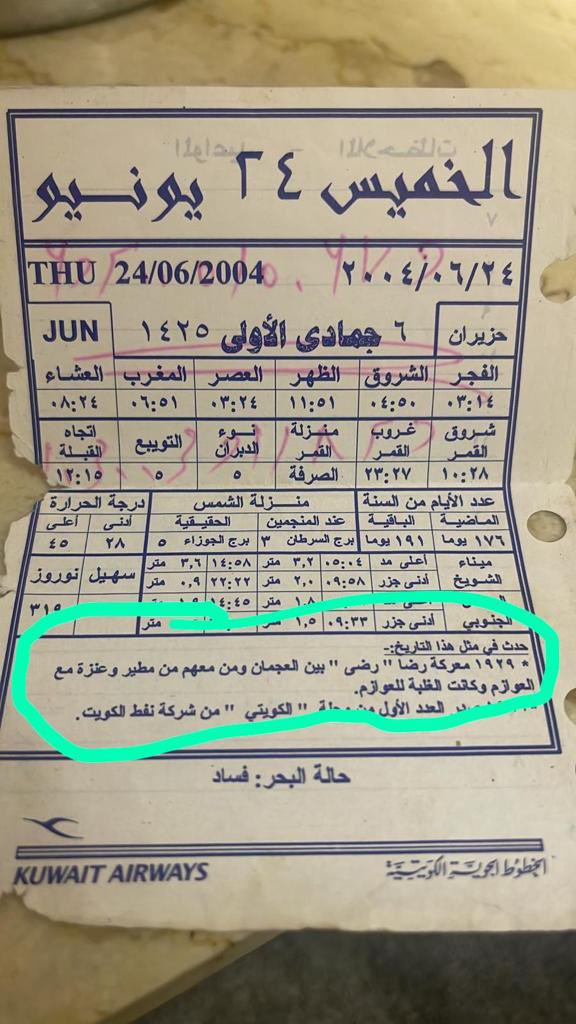 الخميس ٢٤ يونيو
THU 24/06/2004 ٢٠٠٤/٠٦/٢٤
حزيران ٦ جمادى الأولى ١٤٢٥ JUN
الفجر الشروق الظهر العصر المغرب العشاء
٠٣:١٤ ٠٤:٥٠ ١١:٥١ ٠٣:٢٤ ٠٦:٥١ ٠٨:٢٤
شروق القمر غروب القمر منزلة القمر نوء الدبران التويبع اتجاه القبلة
١٠:٢٨ ٢٣:٢٧ الصرفة ٥ ٥ ١٢:١٥
عدد الأيام من السنة منزلة الشمس درجة الحرارة
الماضية الباقية عند المنجمين الحقيقية أدنى أعلى
١٧٦ يوما ١٩١ يوما برج السرطان ٣ برج الجوزاء ٥ ٢٨ ٤٥
ميناء الشويخ أعلى مد ٠٥:٠٤ ٣,٢ متر ١٤:٥٨ ٣,٦ متر سهيل نوروز
أدنى جزر ٠٩:٥٨ ٢,٠ متر ٢٢:٢٢ ٠,٩ متر
١,٨ متر ١٤:٤٥
الجنوبي أدنى جزر ٠٩:٣٣ ١,٥ متر متر
حدث في مثل هذا التاريخ:-
* ١٩٢٩ معركة رضا " رضى " بين العجمان ومن معهم من مطير وعنزة مع
العوازم وكانت الغلبة للعوازم.
العدد الأول من " الكويتي " من شركة نفط الكويت.
حالة البحر: فساد
KUWAIT AIRWAYS الخطوط الجوية الكويتية